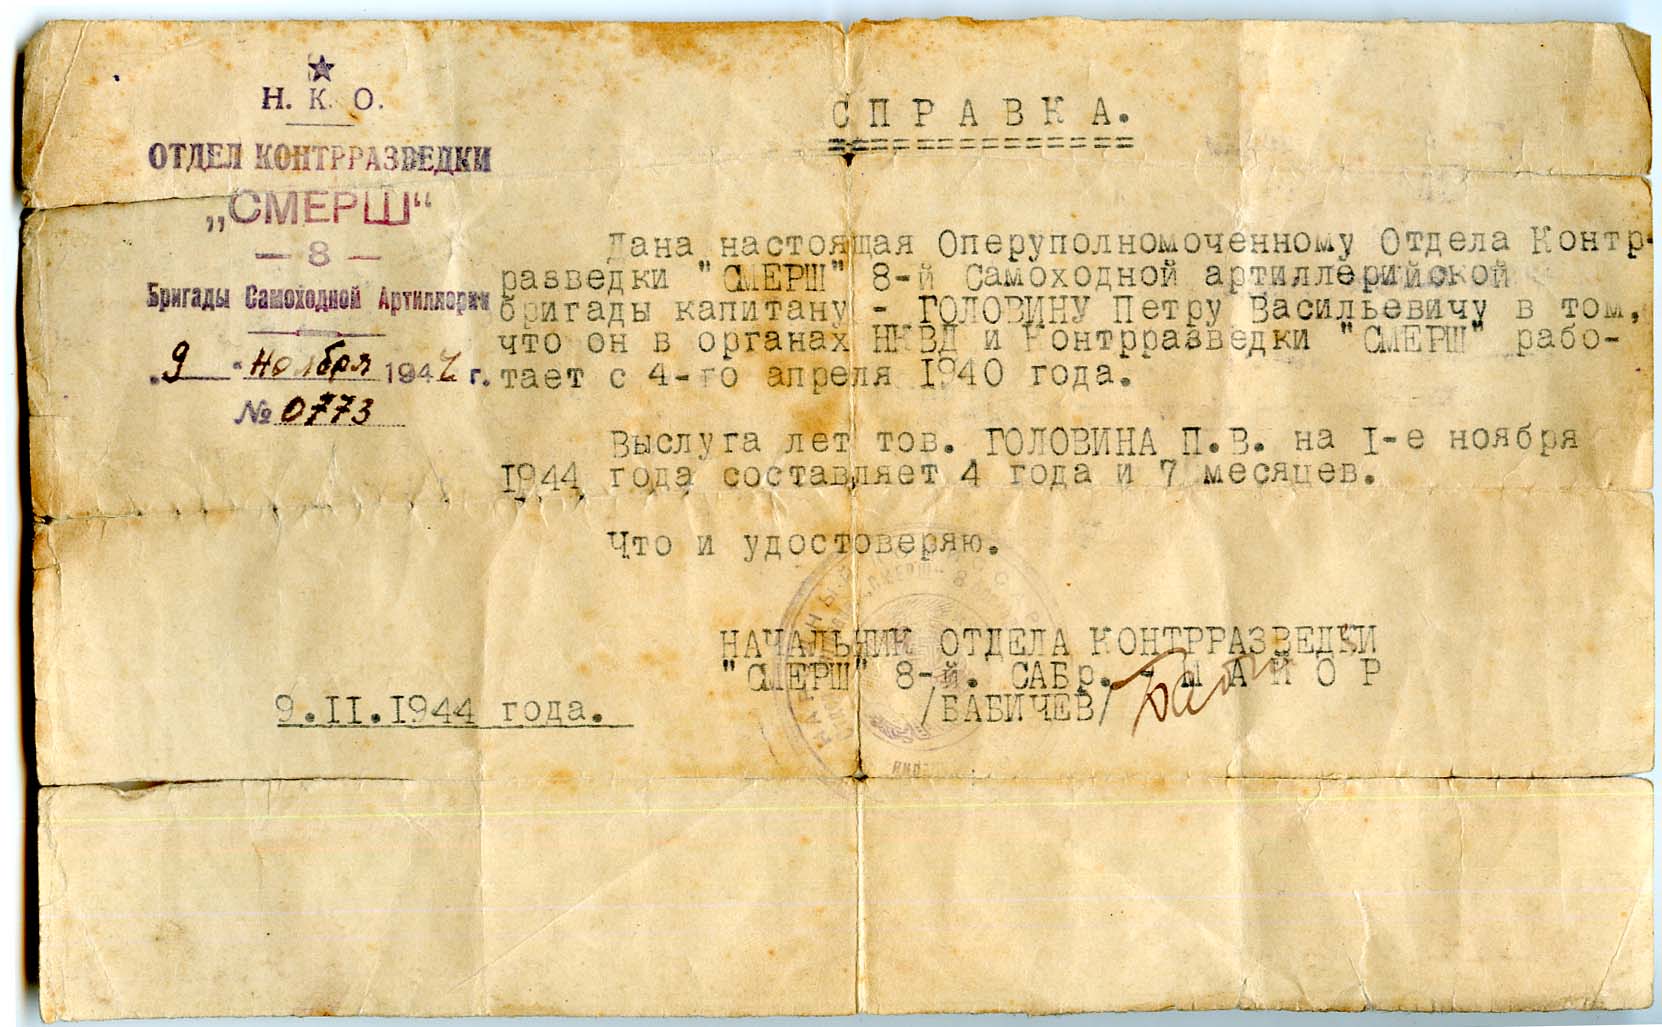 Н. К. О.
ОТДЕЛ КОНТРРАЗВЕДКИ
„СМЕРШ“
— 8 —
Бригады Самоходной Артиллерии
„9 “ ноября 1944 г.
№ 0773
СПРАВКА.
Дана настоящая Оперуполномоченному Отдела Контр-
разведки "СМЕРШ" 8-й Самоходной артиллерийской
бригады капитану - ГОЛОВИНУ Петру Васильевичу в том,
что он в органах НКВД и Контрразведки "СМЕРШ" рабо-
тает с 4-го апреля 1940 года.
Выслуга лет тов. ГОЛОВИНА П.В. на I-е ноября
1944 года составляет 4 года и 7 месяцев.
Что и удостоверяю.
НАЧАЛЬНИК ОТДЕЛА КОНТРРАЗВЕДКИ
"СМЕРШ" 8-й. САБр. - М А Й О Р
/БАБИЧЕВ/
9.II.1944 года.